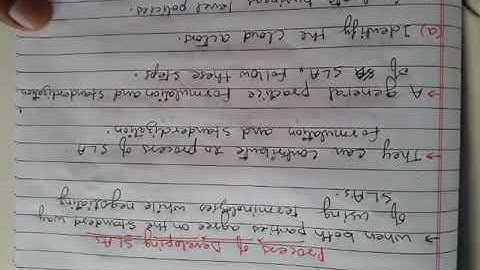 Process of Developing SLAs
→ when both parties agree on the standard way
of using terminologies while negotiating
SLAs.
→ They can contribute to process of SLA
formulation and standardization.
→ A general practice formulation and standardization
of SLA, follow these steps.
(a) Identify the cloud actors.
business level policies.